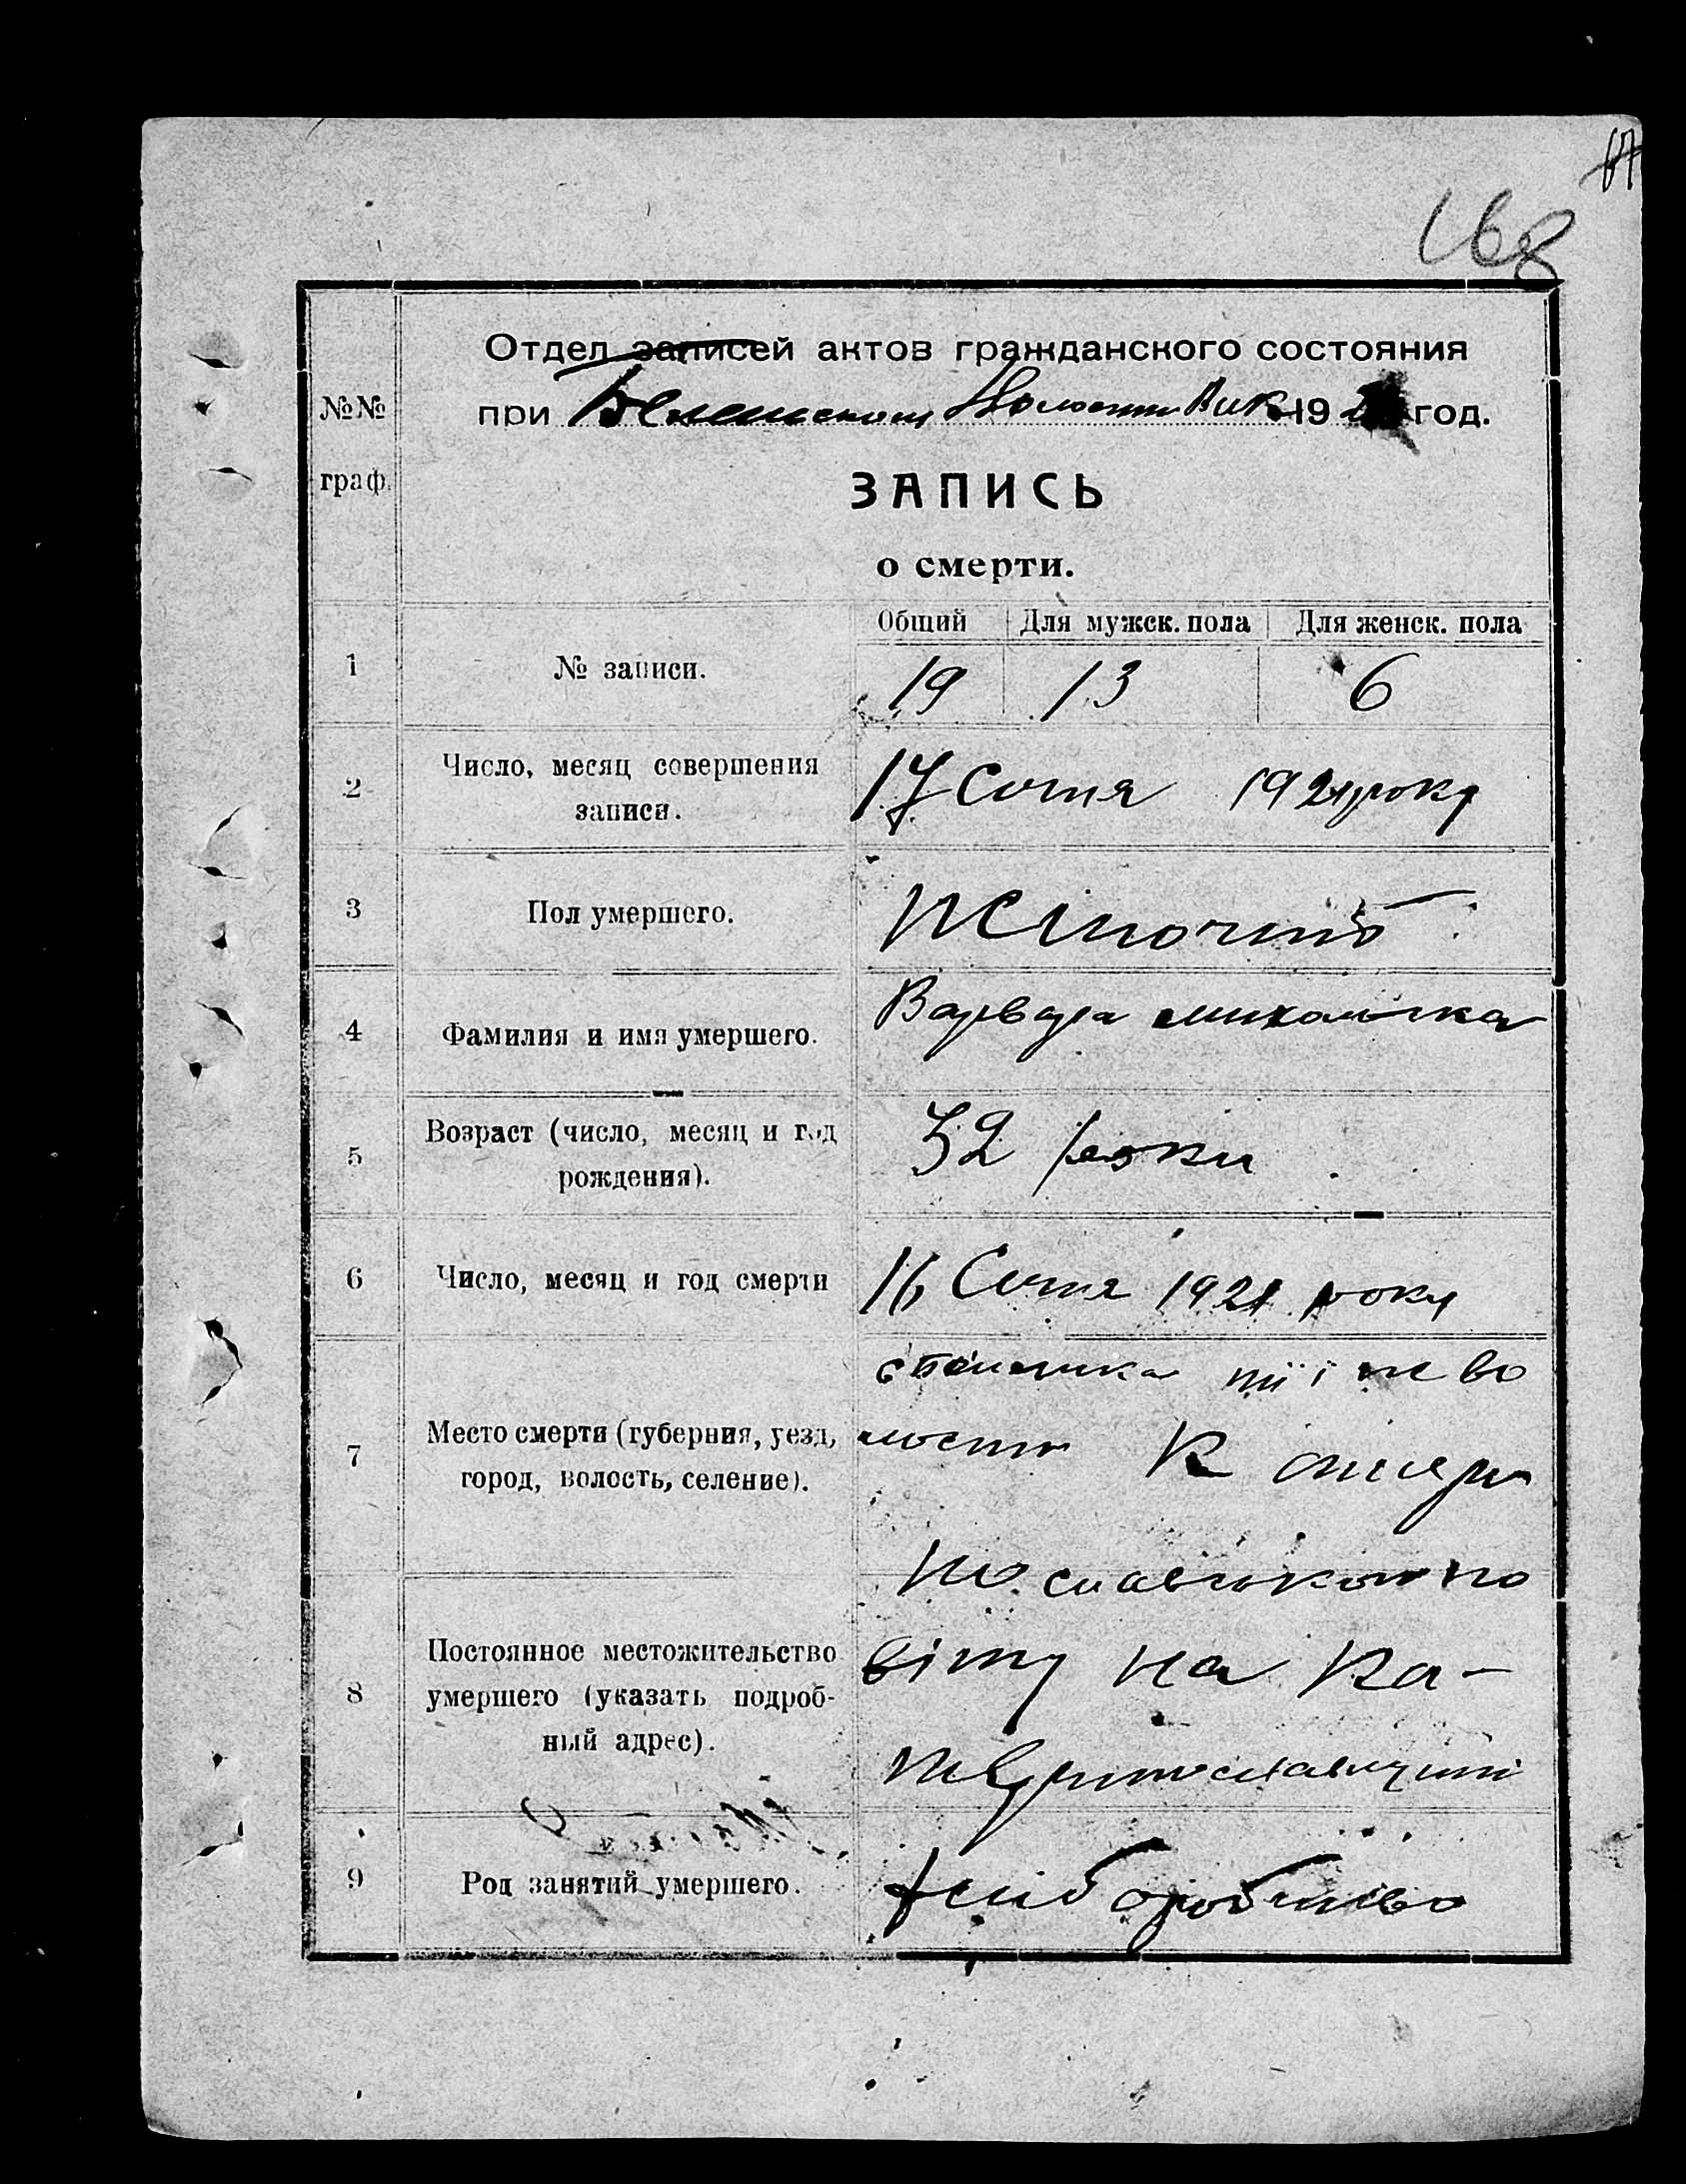 168
Отдел записей актов гражданского состояния
№№ при Волости Вик 192 год.
граф.
ЗАПИСЬ
о смерти.
Общий Для мужск. пола Для женск. пола
1 № записи. 19 13 6
2 Число, месяц совершения 17 Сичня 1921 року
записи.
3 Пол умершего. жіночий
4 Фамилия и имя умершего. Варвара
5 Возраст (число, месяц и год 32 роки
рождения).
6 Число, месяц и год смерти 16 Сичня 1921 року
тії ж во
7 Место смерти (губерния, уезд, лости Катери
город, волость, селение).
нославськом по
8 Постоянное местожительство віту на Ка-
умершего (указать подроб-
ный адрес). теринославщині
9 Род занятий умершего. хліборобство